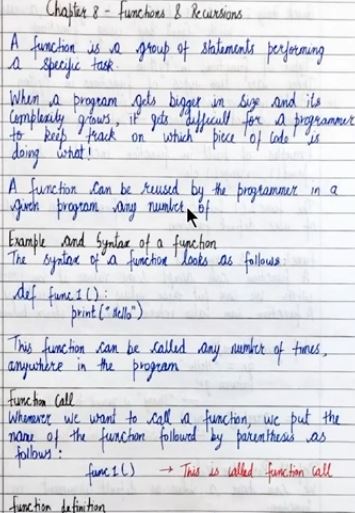 Chapter 8 - Functions & Recursions
A function is a group of statements performing
a specific task.
When a program gets bigger in size and its
complexity grows, it gets difficult for a programmer
to keep track on which piece of code is
doing what!
A function can be reused by the programmer in a
given program any number of
Example and Syntax of a function
The syntax of a function looks as follows:
def func1():
print("Hello")
This function can be called any number of times,
anywhere in the program
function call
Whenever we want to call a function, we put the
name of the function followed by parenthesis as
follows:
func1() → This is called function call
function definition